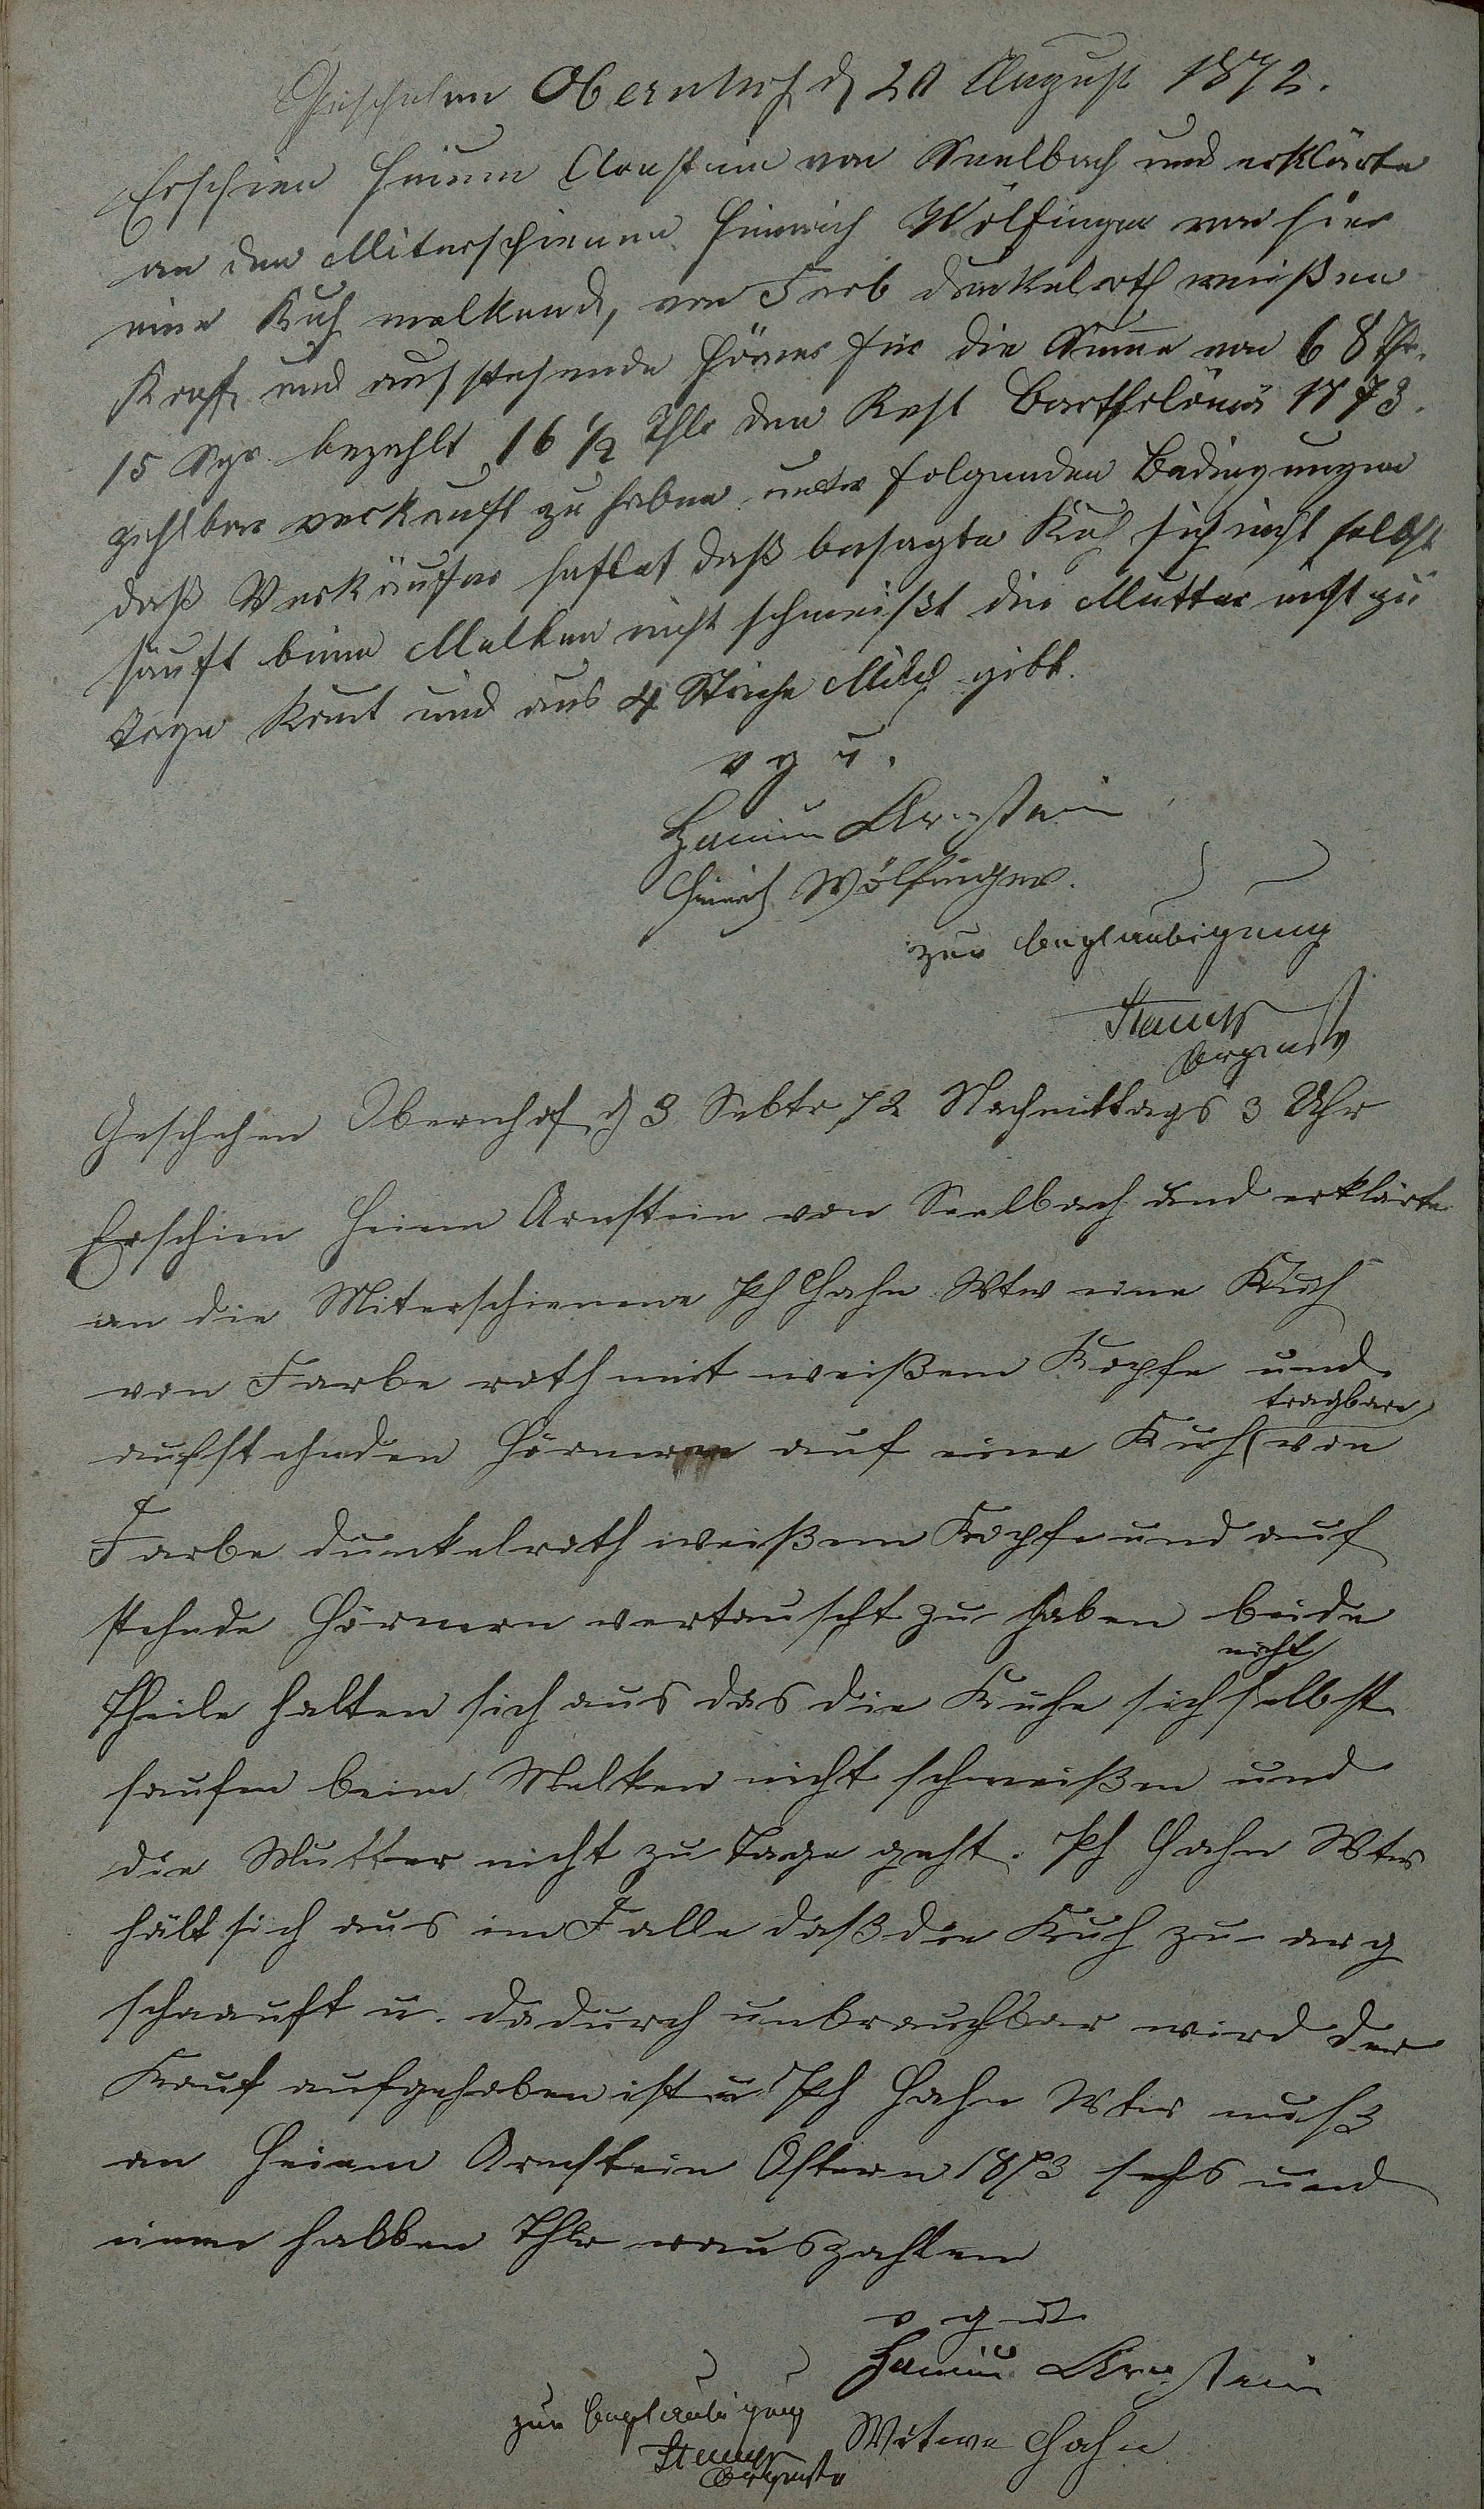 Geschehen Obernhof d 20 August 1872.
Erschien Heium Arnstein von Seelbach und erklärte
an den Miterschienen Heinrich Wölfinger von hier
eine Kuh melkend, von Farb dunkelroth weißen
Kopf und aufstehende Hörner für die Summe von 68 Thr.
15 Sgr bezahlt 16 1/2 Thlr den Rest Bartholömä 1873.
zahlbar verkauft zu haben unter folgenden Bedingungen
daß Verkäufer haftet daß besagte Kuh sich nicht selbst
säuft beim Melken nicht schmeißt die Mutter nicht zu
Tage komt und aus 4 Striche Milch gibt.
v g u.
Haium Arnstein
Heinrich Wölfinger.
zur Beglaubigung
Geschehen Obernhof d 3 Sebtr 72 Nachmittags 3 Uhr
Erschien Heium Arnstein von Seelbach und erklärte
an die Miterschienene Ph Hahn Wtw eine Kuh
von Farbe roth mit weißem Kopfe und
aufstehnden Hörnern auf eine Kuh tragbare von
Farbe dunkelroth weißem Kopfe und auf
stehnde Hörnern vertauscht zu haben beide
Theile halten sich aus das die Kuhe sich nicht selbst
saufen beim Melken nicht schmeißen und
die Mutter nicht zu Tage geht. Ph Hahn Wtw
hält sich aus im Falle daß die Kuh zu arg
schnauft u. dadurch unbrauchbar wird der
Kauf aufgehoben ist u Ph Hahn Wtw muß
an Heium Arnstein Ostern 1873 sechs und
einen halben Thlr rauszahlen
v g u
Haium Arnstein
zur Beglaubigung
Witwe Hahn